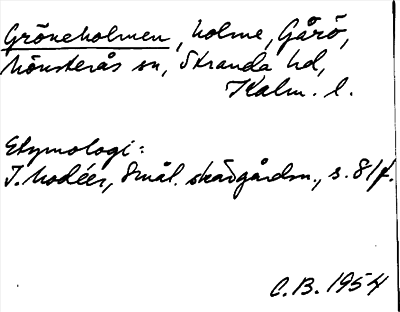 Gröneholmen, holme, Gårö,
Mönsterås sn, Stranda hd,
Kalm. l.
Etymologi:
I. Modéer, Smål. skärgårdsn., s. 81f.
C.B. 1954